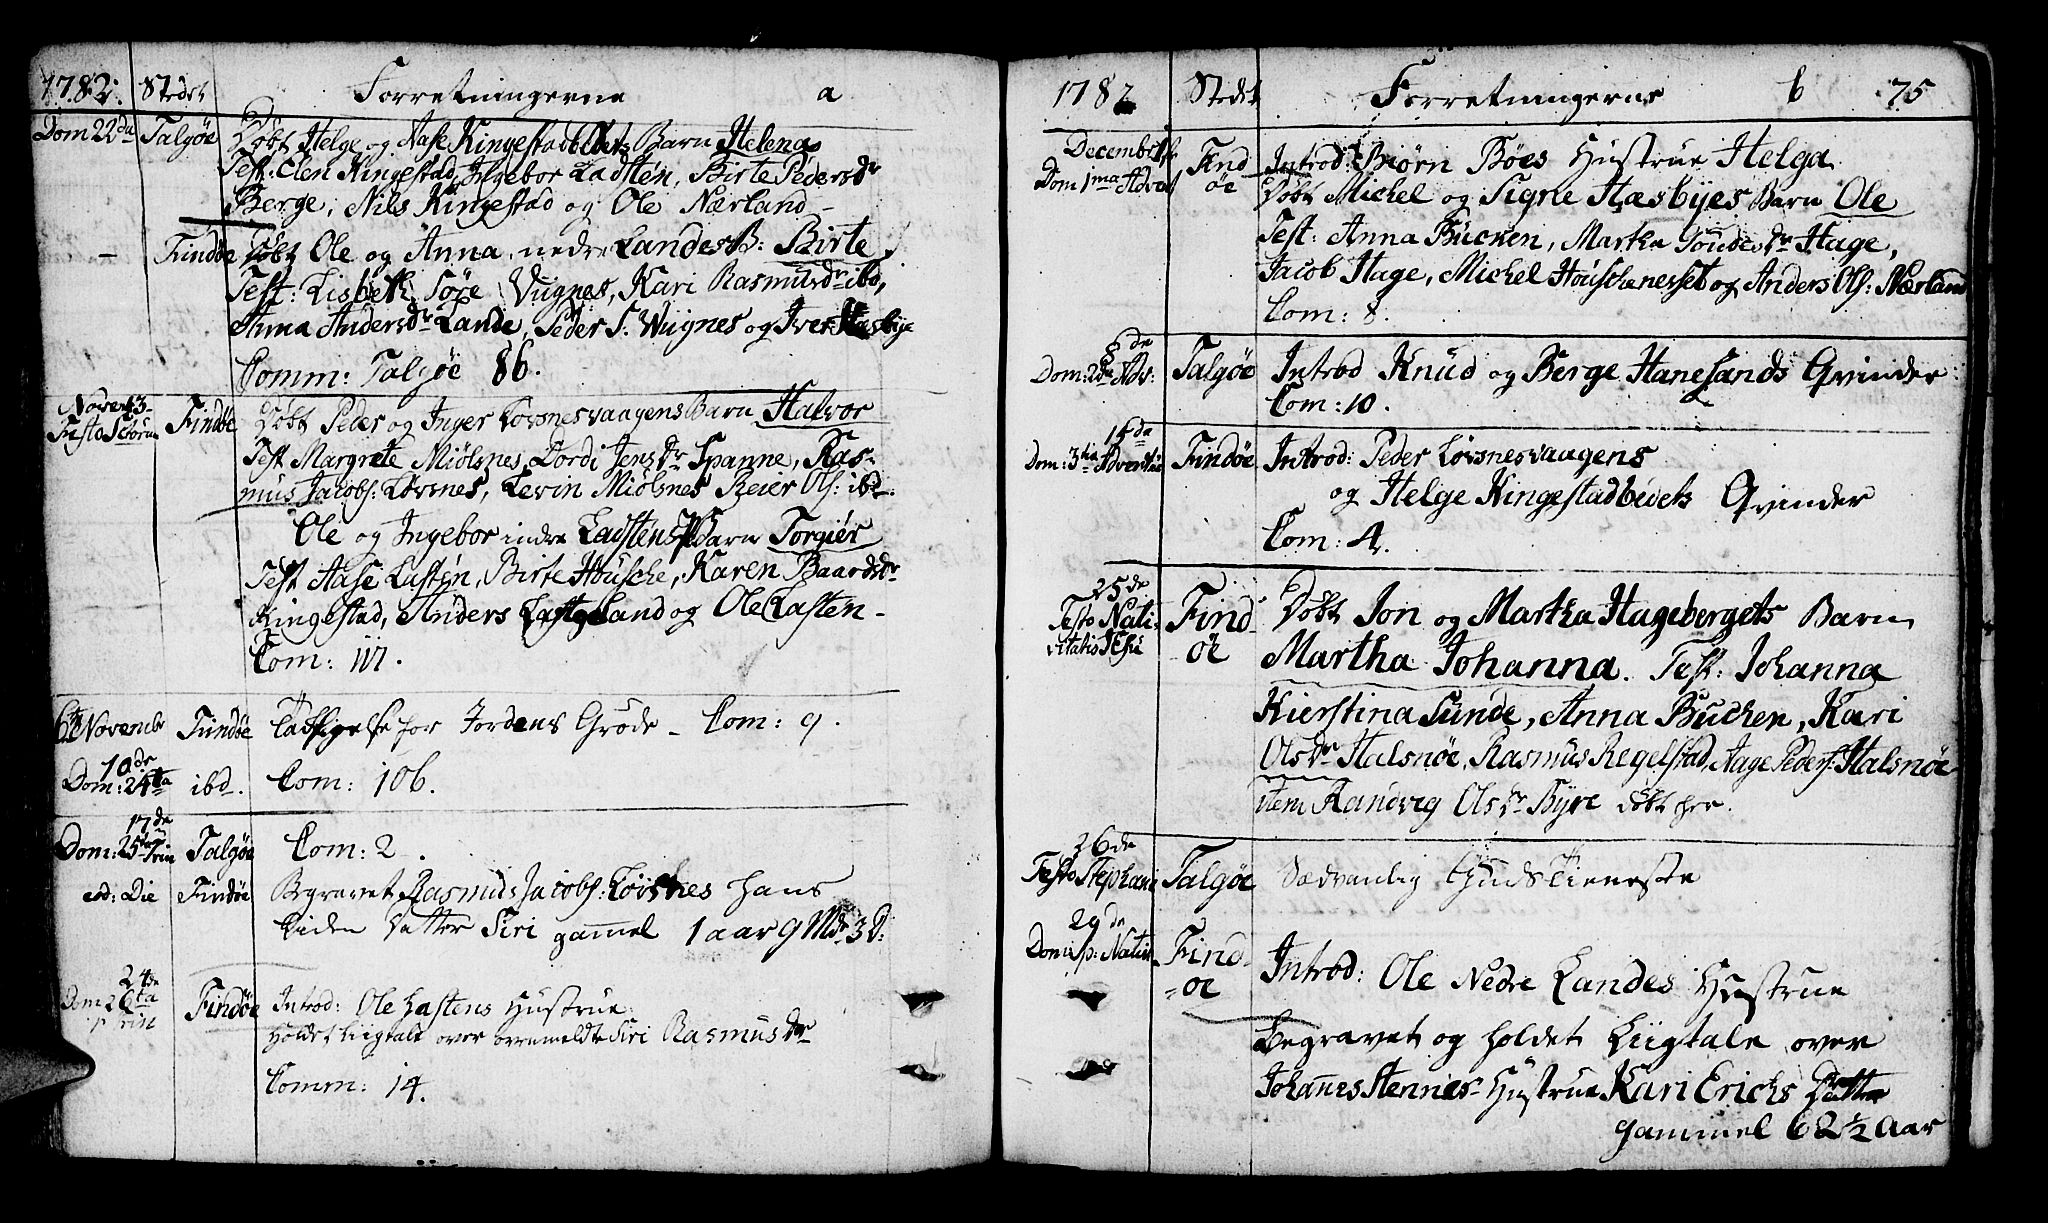 1782. Stedet Forretningerne a
Dom 22da Talgøe Døbt Helge og Aase Kingestadbedets Barn Helena
Test: Elen Kingestad, Ingebor Ladsten, Birte Pedersdr
Berge, Nils Kingestad og Ole Nærland -
- Findøe Døbt Ole og Anna nedre Landes B: Birte
Test: Lisbeth Søre Vignes, Kari Rasmusdr ibd,
Anna Andersdr Lande, Peder S. Wignes og Iver Hæsbye
Comm: Talgøe 86.
Novemb 3
Festo SStorum Findøe Døbt Peder og Inger Løvsnesvaagens Barn Halvor
Test Margrete Miølsnes, Lordi Jensdr Spanne, Ras-
mus Jacobs: Løvsnes, Levin Miølsnes Reier Ols: ibd.
Ole og Ingebor indre Ladstens Barn Torgier
Test Aase Lasten, Birte Housche, Karen Baardsdr
Kingestad, Anders Ladsten og Ole Lasten -
Com: 117.
6te Novemb Findøe Tacksigelse for Jordens Grøde - Com: 9.
10de
Dom: 24ta ibd. Com: 106.
17de
Dom: 25ta Trin Talgøe Com: 2.
eod: Die Findøe Begravet Rasmus Jacobs: Løvsnes hans
liden Datter Siri gammel 1 aar 9 Mdr 3 D:
24de
Dom 26ta
p Trin Findøe Introd: Ole Lastens Hustrue.
Holdet Liigtale over ovenmeldte Siri Rasmusdr
Comm: 14.
1782 Stedet Forretningerne b 75
Decembr 1ste
Dom 1ma Advent Find
øe Introd: Biørn Bøes Hustrue Helga
Døbt Michel og Signe Hæsbyes Barn Ole
Test: Anna Bucken, Martha Tøndesdr Hage,
Jacob Hage, Michel Houschenesset og Anders Ols: Nærland
Com: 8.
8de
Dom: 2da Adv: Talgøe Introd Knud og Berge Hanesands Qvinder
Com: 10.
15de
Dom: 3tia Adventus Findøe Introd: Peder Løvsnesvaagens
og Helge Kingestadbedets Qvinder
Com: 4.
25de
Festo Nati-
vitatis Jesu Find-
øe Døbt Jon og Martha Hagebergets Barn
Martha Johanna. Test: Johanna
Kierstina Sunde, Anna Bucken, Kari
Olsdr Halsnøe, Rasmus Regelstad, Aage Peders: Halsnøe
item Randvig Olsdr Byre døbt her.
26de
Festo Stephani Talgøe Sædvanlig Gudstieneste
29de
Dom p: Nativ Find-
øe Introd: Ole Nedre Landes Hustrue
Begravet og holdet Liigtale over
Johannes Stennes Hustrue Kari Erichs Datter
gammel 62 1/2 Aar